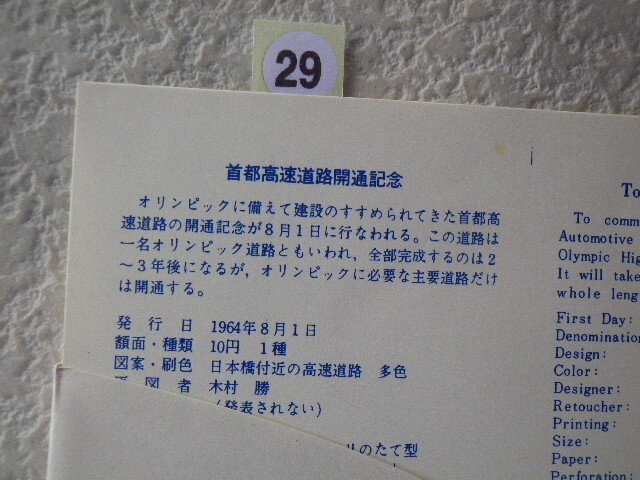 29
首都高速道路開通記念
オリンピックに備えて建設のすすめられてきた首都高
速道路の開通記念が8月1日に行なわれる。この道路は
一名オリンピック道路ともいわれ，全部完成するのは2
～3年後になるが，オリンピックに必要な主要道路だけ
は開通する。
発行日 1964年8月1日
額面・種類 10円 1種
図案・刷色 日本橋付近の高速道路 多色
図者 木村 勝
(発表されない)
リのたて型
To
To comm
Automotive
Olympic Hig
It will take
whole leng
First Day:
Denomination
Design:
Color:
Designer:
Retoucher:
Printing:
Size:
Paper:
Perforation: